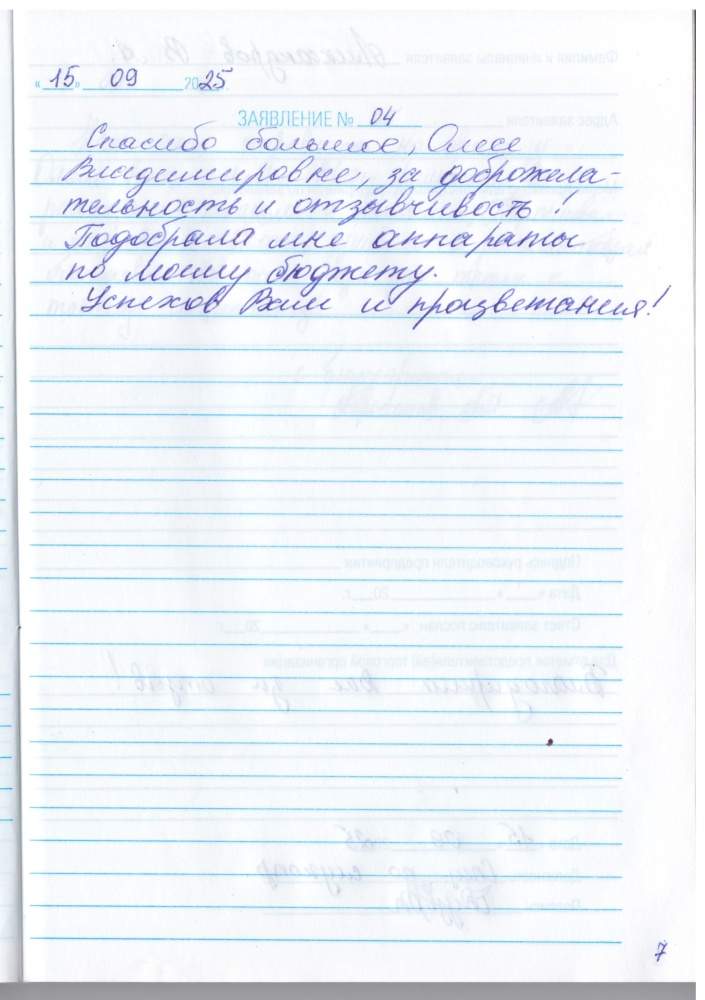 «15» 09 2025
ЗАЯВЛЕНИЕ № 04
Спасибо большое, Олесе
Владимировне, за доброжела-
тельность и отзывчивость!
Подобрала мне аппараты
по моему бюджету.
Успехов Вам и процветания!
7